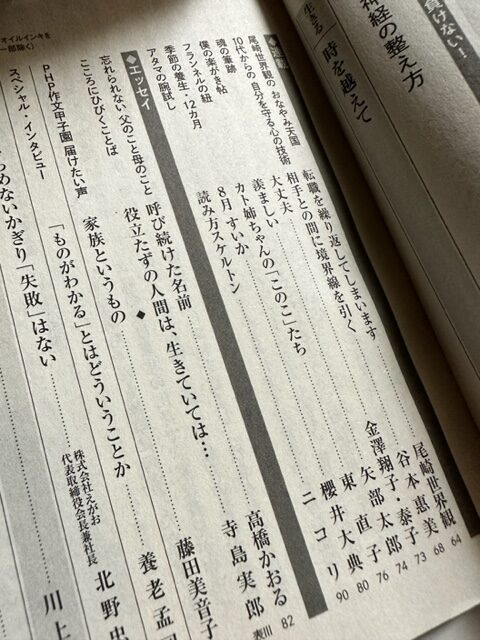 負けない!
神経の整え方
生きる
時を越えて
尾崎世界観の おなやみ天国 転職を繰り返してしまいます 尾崎世界観 64
10代からの 自分を守る心の技術 相手との間に境界線を引く 谷本惠美 68
魂の筆跡 大丈夫 金澤翔子・泰子 73
僕の楽がき帖 羨ましい 矢部太郎 74
フランネルの紐 カト姉ちゃんの「このこ」たち 東 直子 76
季節の養生・12カ月 8月 すいか 櫻井大典 80
アタマの腕試し 読み方スケルトン ニコリ 90
◆エッセイ
忘れられない 父のこと母のこと 呼び続けた名前 高橋かおる 82
こころにひびくことば 役立たずの人間は、生きていては… 寺島実郎 表Ⅲ
◆
PHP作文甲子園 届けたい声 家族というもの 藤田美音子
スペシャル・インタビュー 「ものがわかる」とはどういうことか 養老孟
めないかぎり「失敗」はない 株式会社えがお 代表取締役会長兼社長 北野
川上
オイルインキを
一部除く)